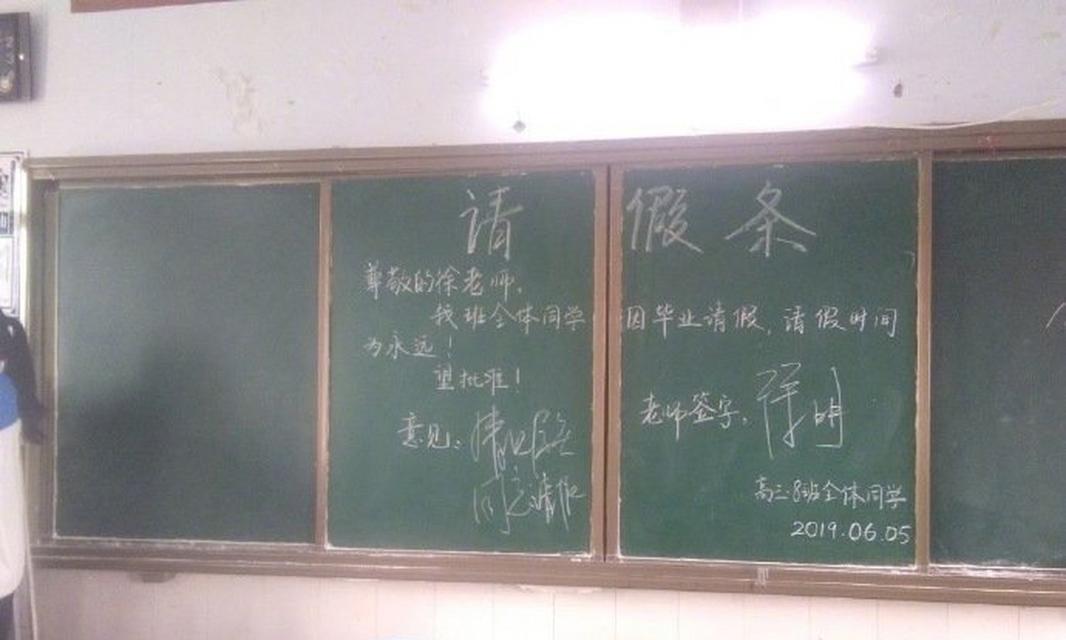 请假条
尊敬的徐老师,
我班全体同学因毕业请假,请假时间
为永远!
望批准!
意见:情况属实
同意请假
老师签字:徐明
高三·8班全体同学
2019.06.05